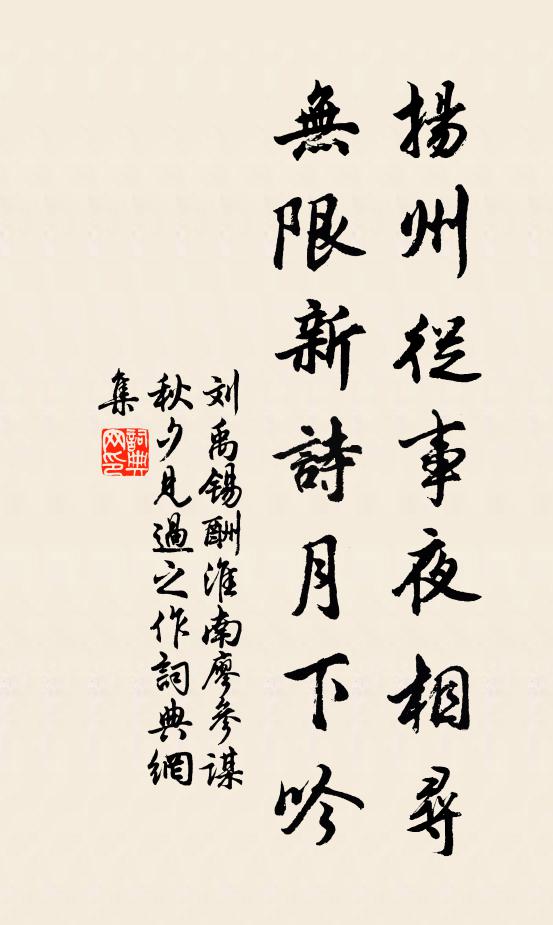 揚州從事夜相尋
無限新詩月下吟
刘禹锡酬淮南廖參謀
秋夕見過之作詞典網
集
詞典
网印